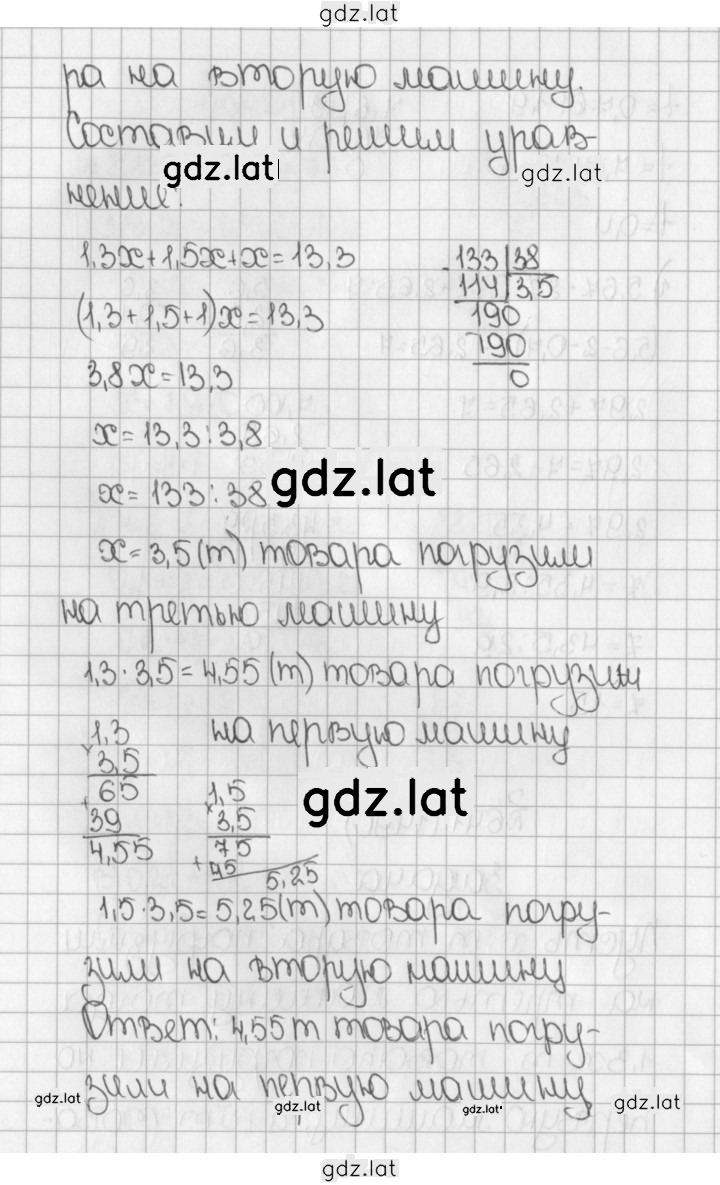 gdz.lat
ра на вторую машину.
Составим и решим урав-
gdz.lat gdz.lat
нение:
1,3x+1,5x+x=13,3
(1,3+1,5+1)x=13,3
3,8x=13,3
x=13,3:3,8
x=133:38
133 38
114 3,5
190
190
0
gdz.lat
x=3,5(т) товара погрузили
на третью машину
1,3·3,5=4,55(т) товара погрузили
на первую машину
1,3
× 3,5
65
+ 39
4,55
gdz.lat
1,5
× 3,5
75
+ 45
5,25
1,5·3,5=5,25(т) товара погру-
зили на вторую машину
Ответ: 4,55 т товара погру-
зили на первую машину,
gdz.lat gdz.lat gdz.lat gdz.lat
gdz.lat